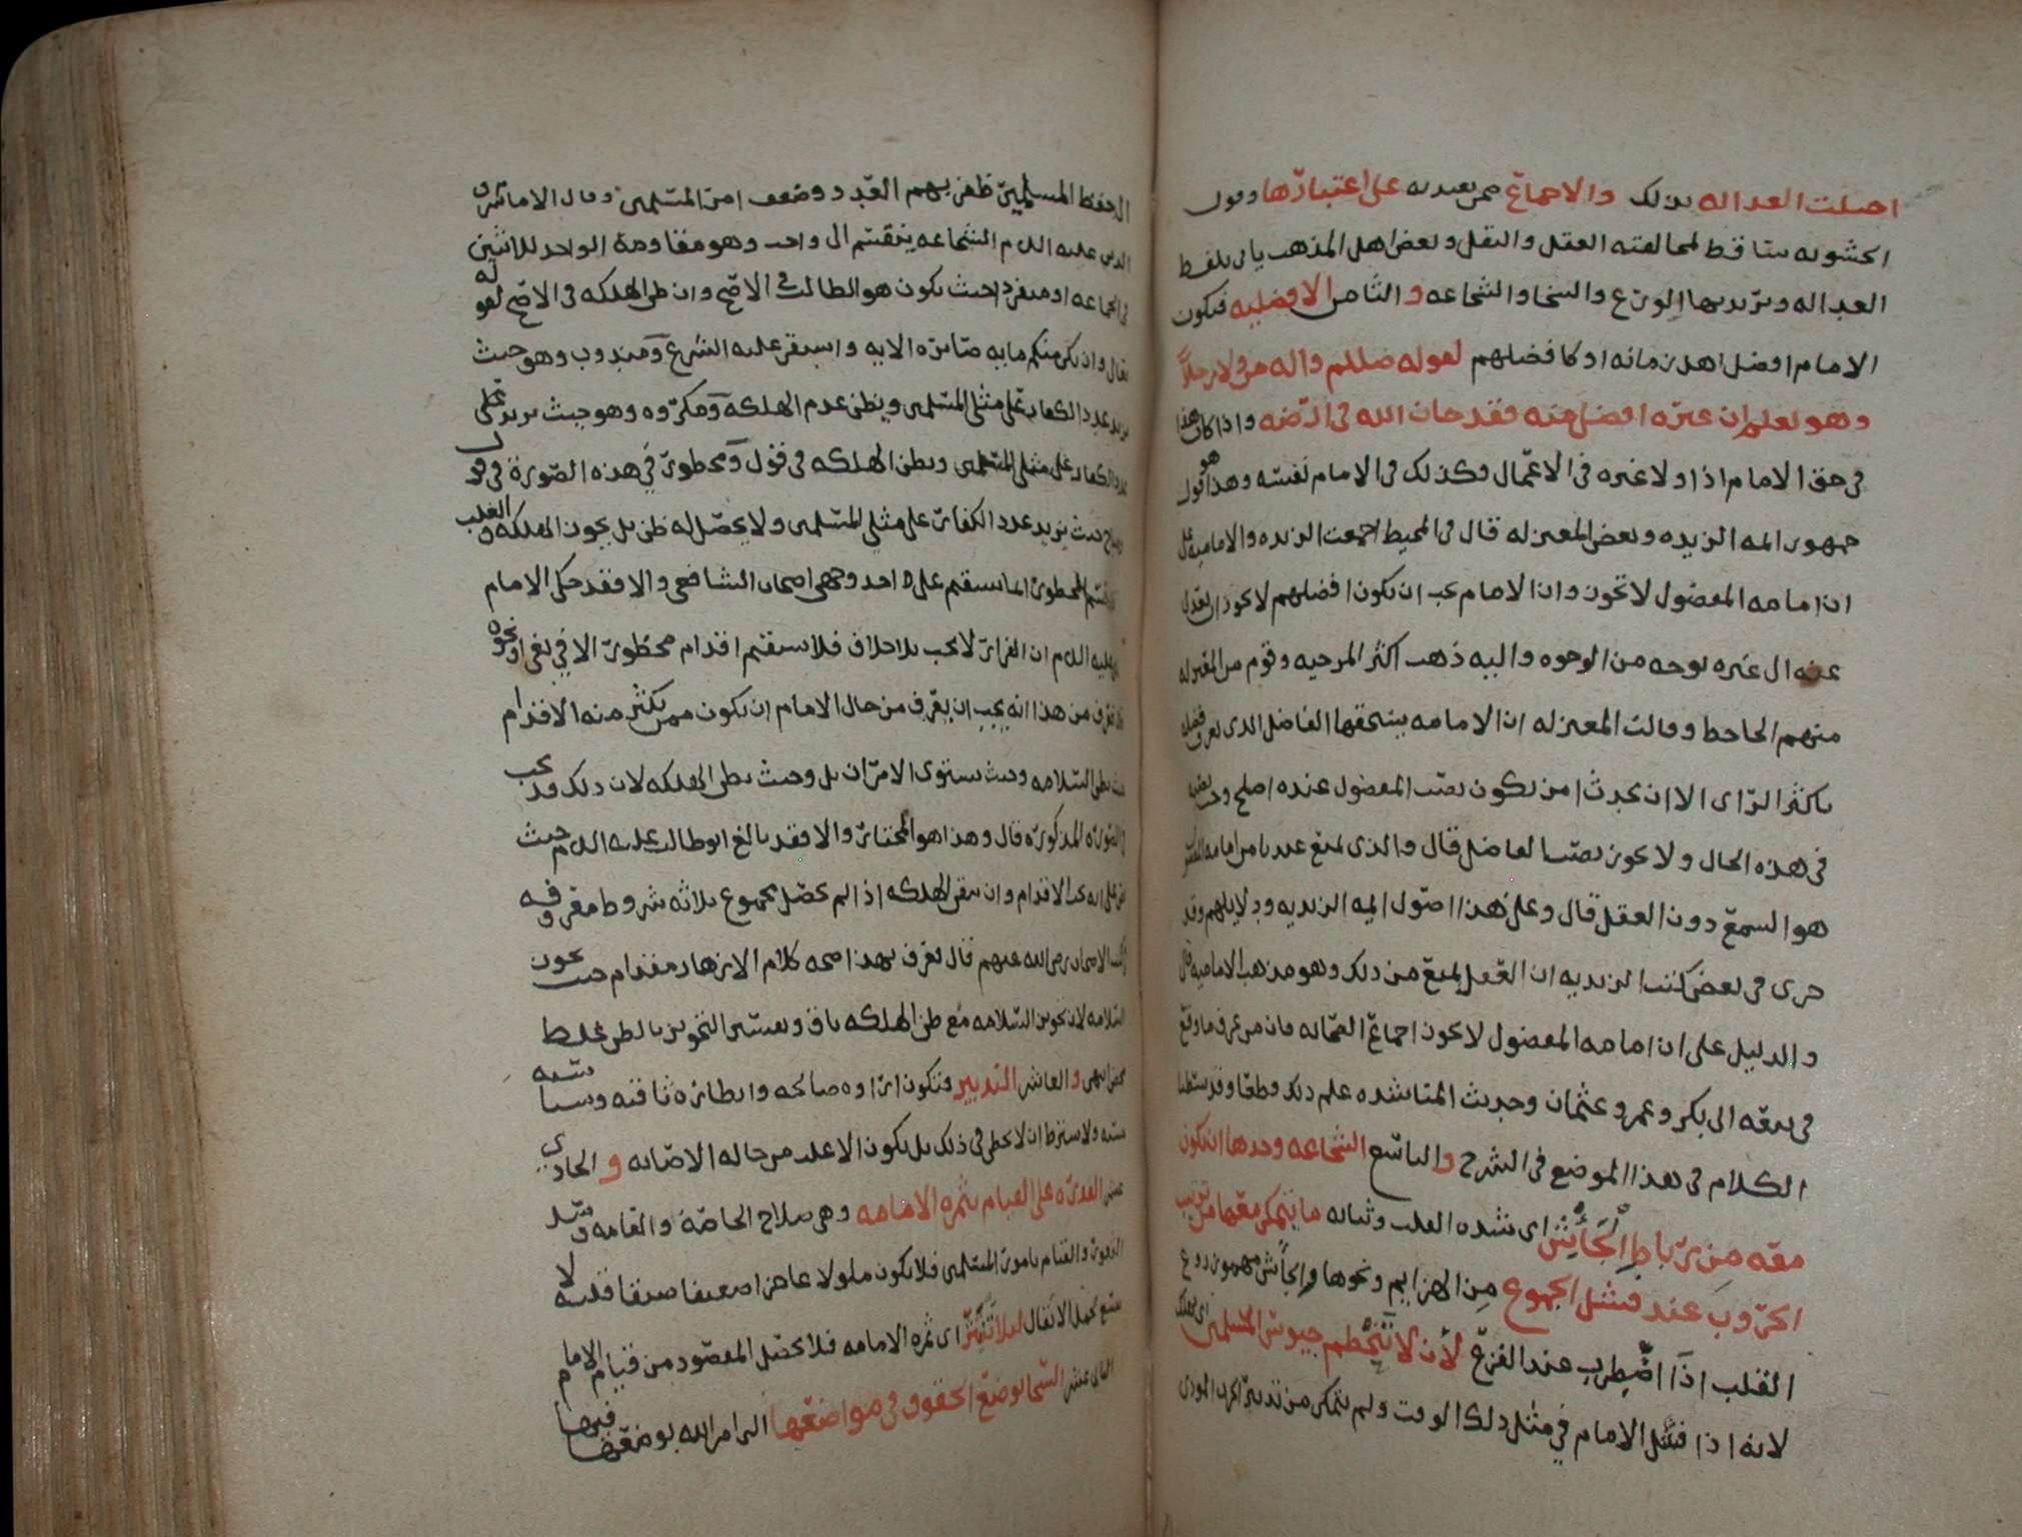 اختلت العداله بذلك والاجماع ممن يعتد به على اعتبارها وقول
الحشويه ساقط لمخالفته العقل والنقل وبعض اهل المذهب ياتي بلفظ
العداله ويريد بها الورع والسخا والشجاعه والثامن الافضليه فيكون
الامام افضل اهل زمانه او كافضلهم لقوله صللم واله من ولا رجلاً
وهو يعلم ان غيره افضل منه فقد خان الله في ارضه واذا كان هذا
في حق الامام اذا ولا غيره في الاعمال فكذلك في الامام نفسه وهذا هو قول
جمهور ايمه الزيديه وبعض المعتزله قال في المحيط اجمعت الزيديه والاماميه على
ان امامه المفضول لا تجوز وان الامام يجب ان يكون افضلهم لا يجوز ان يعدل
عنه الى غيره بوجه من الوجوه واليه ذهب اكثر المرجيه وقوم من المعتزله
منهم الجاحظ وقالت المعتزله ان الامامه يستحقها الفاضل الذي يعرف فضله
باكثر الراى الا ان يحدث امر يكون نصب المفضول عنده اصلح
في هذه الحال ولا يجوز نصب الفاضل قال والذي يمنع عندنا من امامه
هو السمع دون العقل قال وعلى هذا اصول ايمه الزيديه ودلايلهم وقد
جرى في بعض كتب الزيديه ان العقل يمنع من ذلك وهو مذهب الاماميه قال
والدليل على ان امامه المفضول لا تجوز اجماع الصحابه فان من عرف ما وقع
في بيعه ابي بكر وعمر وعثمان وحديث المناشده علم ذلك قطعا وقد بسطنا
الكلام في هذا الموضع في الشرح والتاسع الشجاعه وحدها ان يكون
معه من رباط الجأش اى شده القلب وثباته ما يتمكن معها من ترتيب
الحروب عند فشل الجموع من الهزايم ونحوها والجأش مهموز روع
القلب اذا اضطرب عند الفزع لأن لا تنحطم جيوش المسلمين
لانه اذا فشل الامام في مثل ذلك الوقت ولم يتمكن من تدبير الحرب
المسلمين ظفر بهم العدو وضعف امر المسلمين وقال الامام شرف
الدين عليه السلم الشجاعه ينقسم الى واجب وهو مقاومة الواحد للاثنين
في الجماعه او منفردا حيث يكون هو الطالب في الاصح وان ظن الهلكه في الاصح لقوله
تعالى وان يكن منكم مايه صابره الايه واستقر عليه الشرع ومندوب وهو حيث
يزيد عدد الكفار على مثلى المسلمين ويظن عدم الهلكة ومكروه وهو حيث يزيد
عدد الكفار على مثلى المسلمين ويظن الهلكه في قول ومحظور في هذه الصورة في قول
ومباح حيث يزيد عدد الكفار على مثلي المسلمين ولا يحصل له ظن بل يجوز الهلكه والغلب
المحظور انما يستقيم على احد وجهي اصحاب الشافعي والا فقد حكى الامام
عليه السلم ان الفرار لا يجب بلا خلاف فلا يستقيم اقدام محظور الا في بغي او نحوه
فعرف من هذا انه يجب ان يعرف من حال الامام ان يكون ممن يكثر منه الاقدام
حيث يظن السلامه وحيث يستوي الامران بل وحيث يظن الهلكه لان ذلك قد يجب
في الصوره المذكوره قال وهذا هو المختار والا فقد بالغ ابو طالب عليه السلم حيث
نص على انه يجب الاقدام وان تيقن الهلكه اذا لم يحصل مجموع ثلاثه شروط معروفه
الاصحاب رضى الله عنهم قال فعرف بهذا صحه كلام الازهار مقدام حيث يجوز
السلامه لان تجويز السلامه مع ظن الهلكه باق وتفسير التجويز بالظن غلط
والعاشر التدبير فتكون اراوه صالحه وانظاره ثاقبه
ولا يشترط ان لا يخطى في ذلك بل يكون الاغلب من حاله الاصابه والحادي
عشر القدره على القيام بثمره الامامه وهى صلاح الخاصه والعامه
الثغور والقيام بامور المسلمين فلا يكون ملولا عاجزا ضعيفا ضيقا قلبه لا
يتسع لحمل الاثقال لعلا تنتثر اى ثمره الامامه فلا يحصل المقصود من قيام الامام
الثاني عشر السخا بوضع الحقوق في مواضعها التي امر الله بوضعها فيها